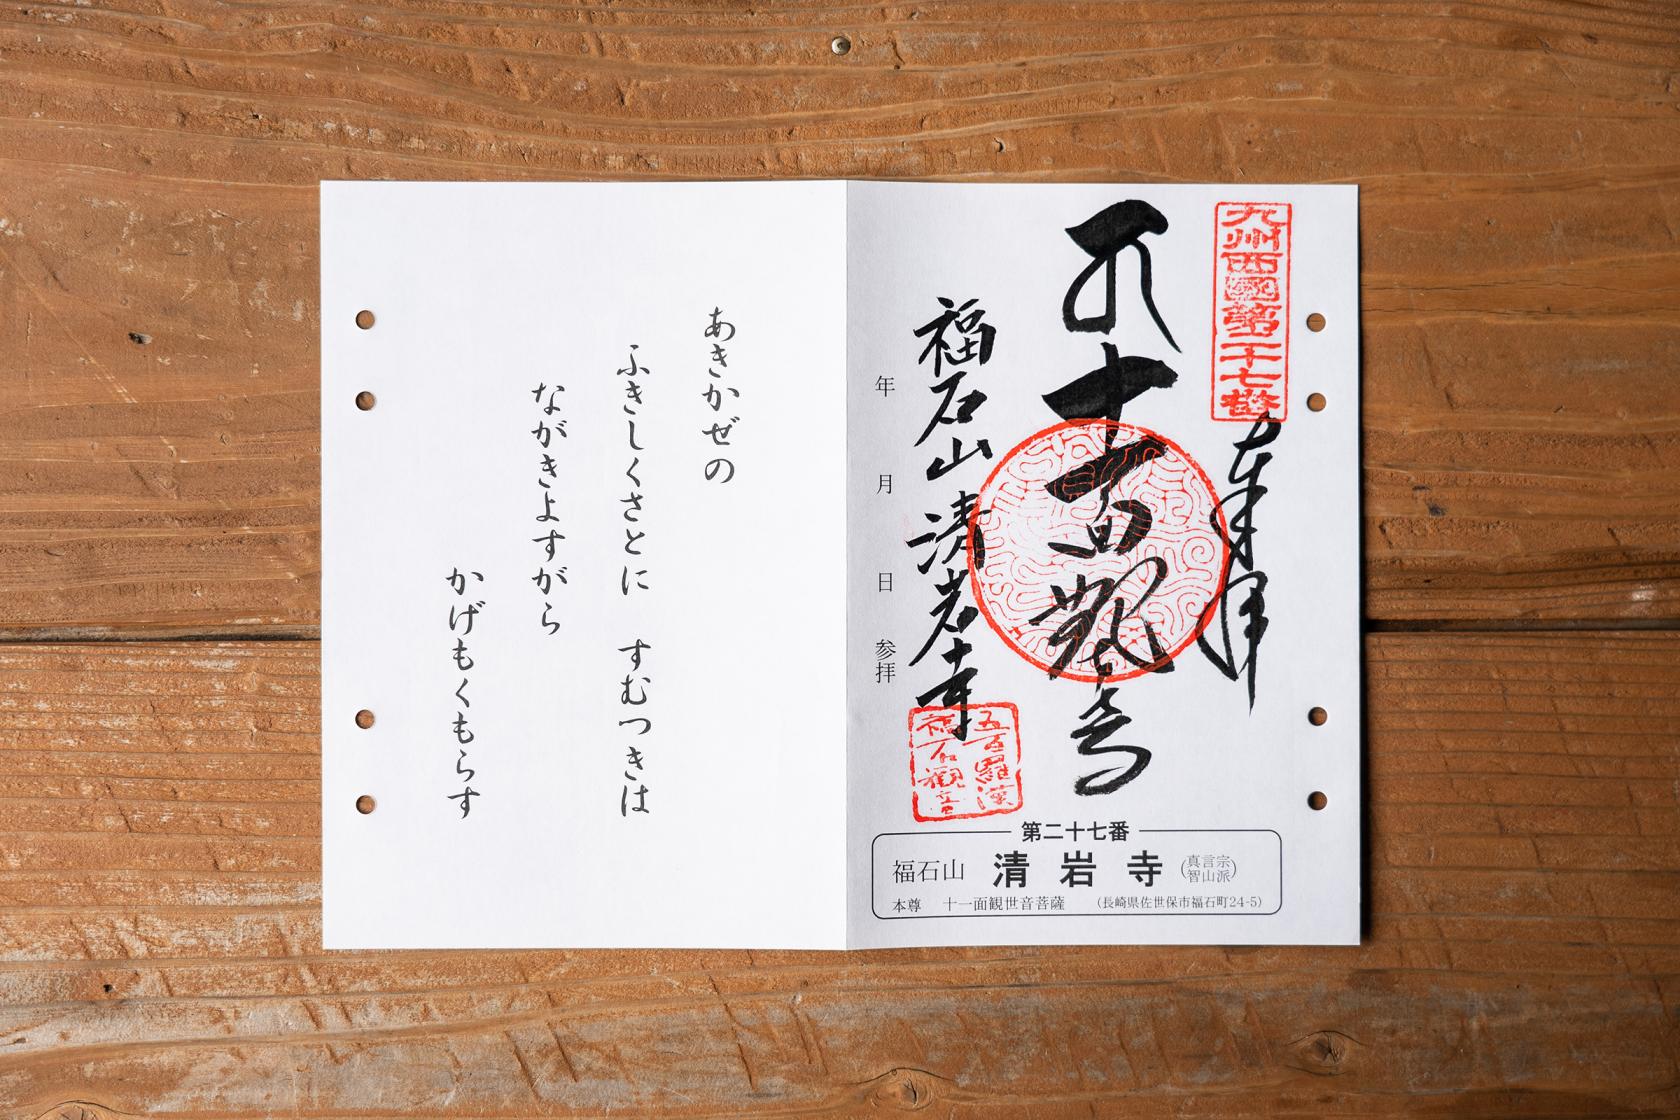 九州西國第二十七番
奉拝
十一面観音
福石山清岩寺
五百羅漢
福石観音
年 月 日 参拝
第二十七番
福石山 清岩寺 (真言宗智山派)
本尊 十一面観世音菩薩 (長崎県佐世保市福石町24-5)
あきかぜの
ふきしくさとに すむつきは
ながきよすがら
かげもくもらす